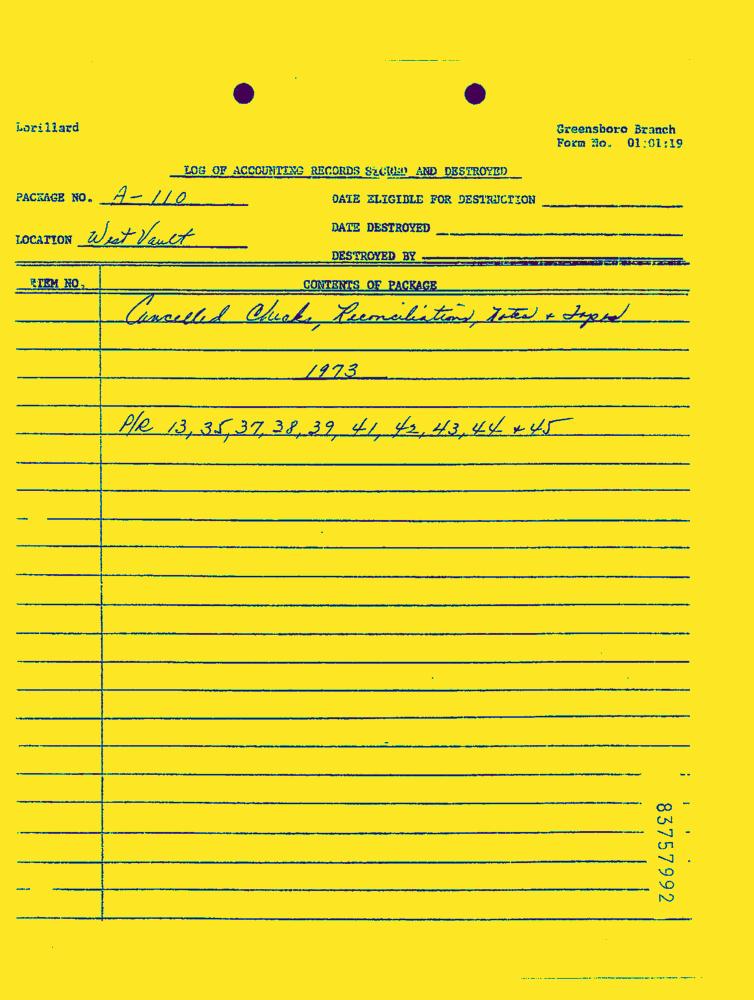 Lorillard
Greensboro Branch
Form No. 01:01:19
LOG OF ACCOUNTING RECORDS STORED AND DESTROYED
PACKAGE NO. A-110
DATE ELIGIBLE FOR DESTRUCTION
LOCATION West Vault
DATE DESTROYED
DESTROYED BY
ITEM NO.
CONTENTS OF PACKAGE
Cancelled Checks, Reconciliations, Notes + Tapes
1973
P/R 13, 35, 37, 38, 39, 41, 42, 43, 44 + 45
83757992